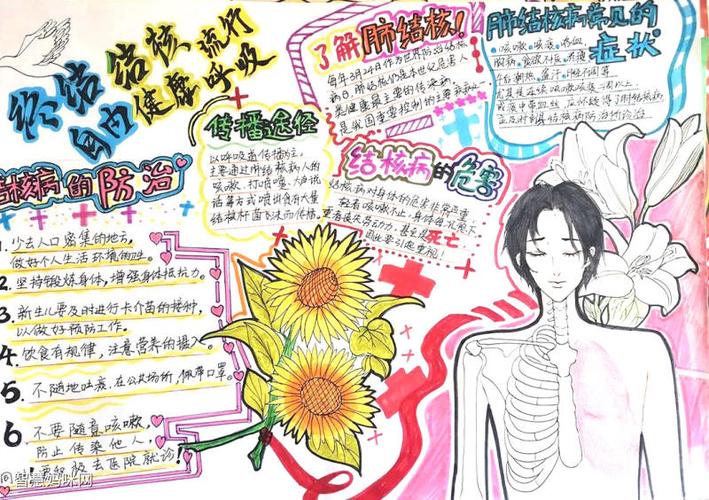 终结结核流行
自由健康呼吸
了解肺结核!
每年3月24日作为世界防治结核
病日 肺结核仍是本世纪危害人
类健康最主要的传染病,
是我国重要控制的主要疾病之
肺结核病常见的
症状
咳嗽。咳痰。咯血,
胸痛。食欲不振。疲惫
午后潮热。盗汗
尤其是连续咳嗽咳痰二周以上
或痰中带血丝,应怀疑得了肺结核病
传播途径
以呼吸道传播为主,
主要通过肺结核病人的
咳嗽、打喷嚏、大声说
话等方式喷出含有大量
结核杆菌飞沫而传播。
结核病的危害
结核病对身体的危害非常严重
轻者咳嗽不止,身体每况愈下
重者丧失劳动力,甚至是死亡
因此要引起重视!
结核病的防治
1. 少去人口密集的地方,
做好个人生活环境的卫生。
2. 坚持锻炼身体,增强身体抵抗力。
3. 新生儿要及时进行卡介苗的接种,
以做好预防工作。
4. 饮食有规律,注意营养的摄入。
5. 不随地吐痰。在公共场所,佩带口罩。
6 不要随意咳嗽,
防止传染他人,
去医院就诊!
@智慧妈咪网